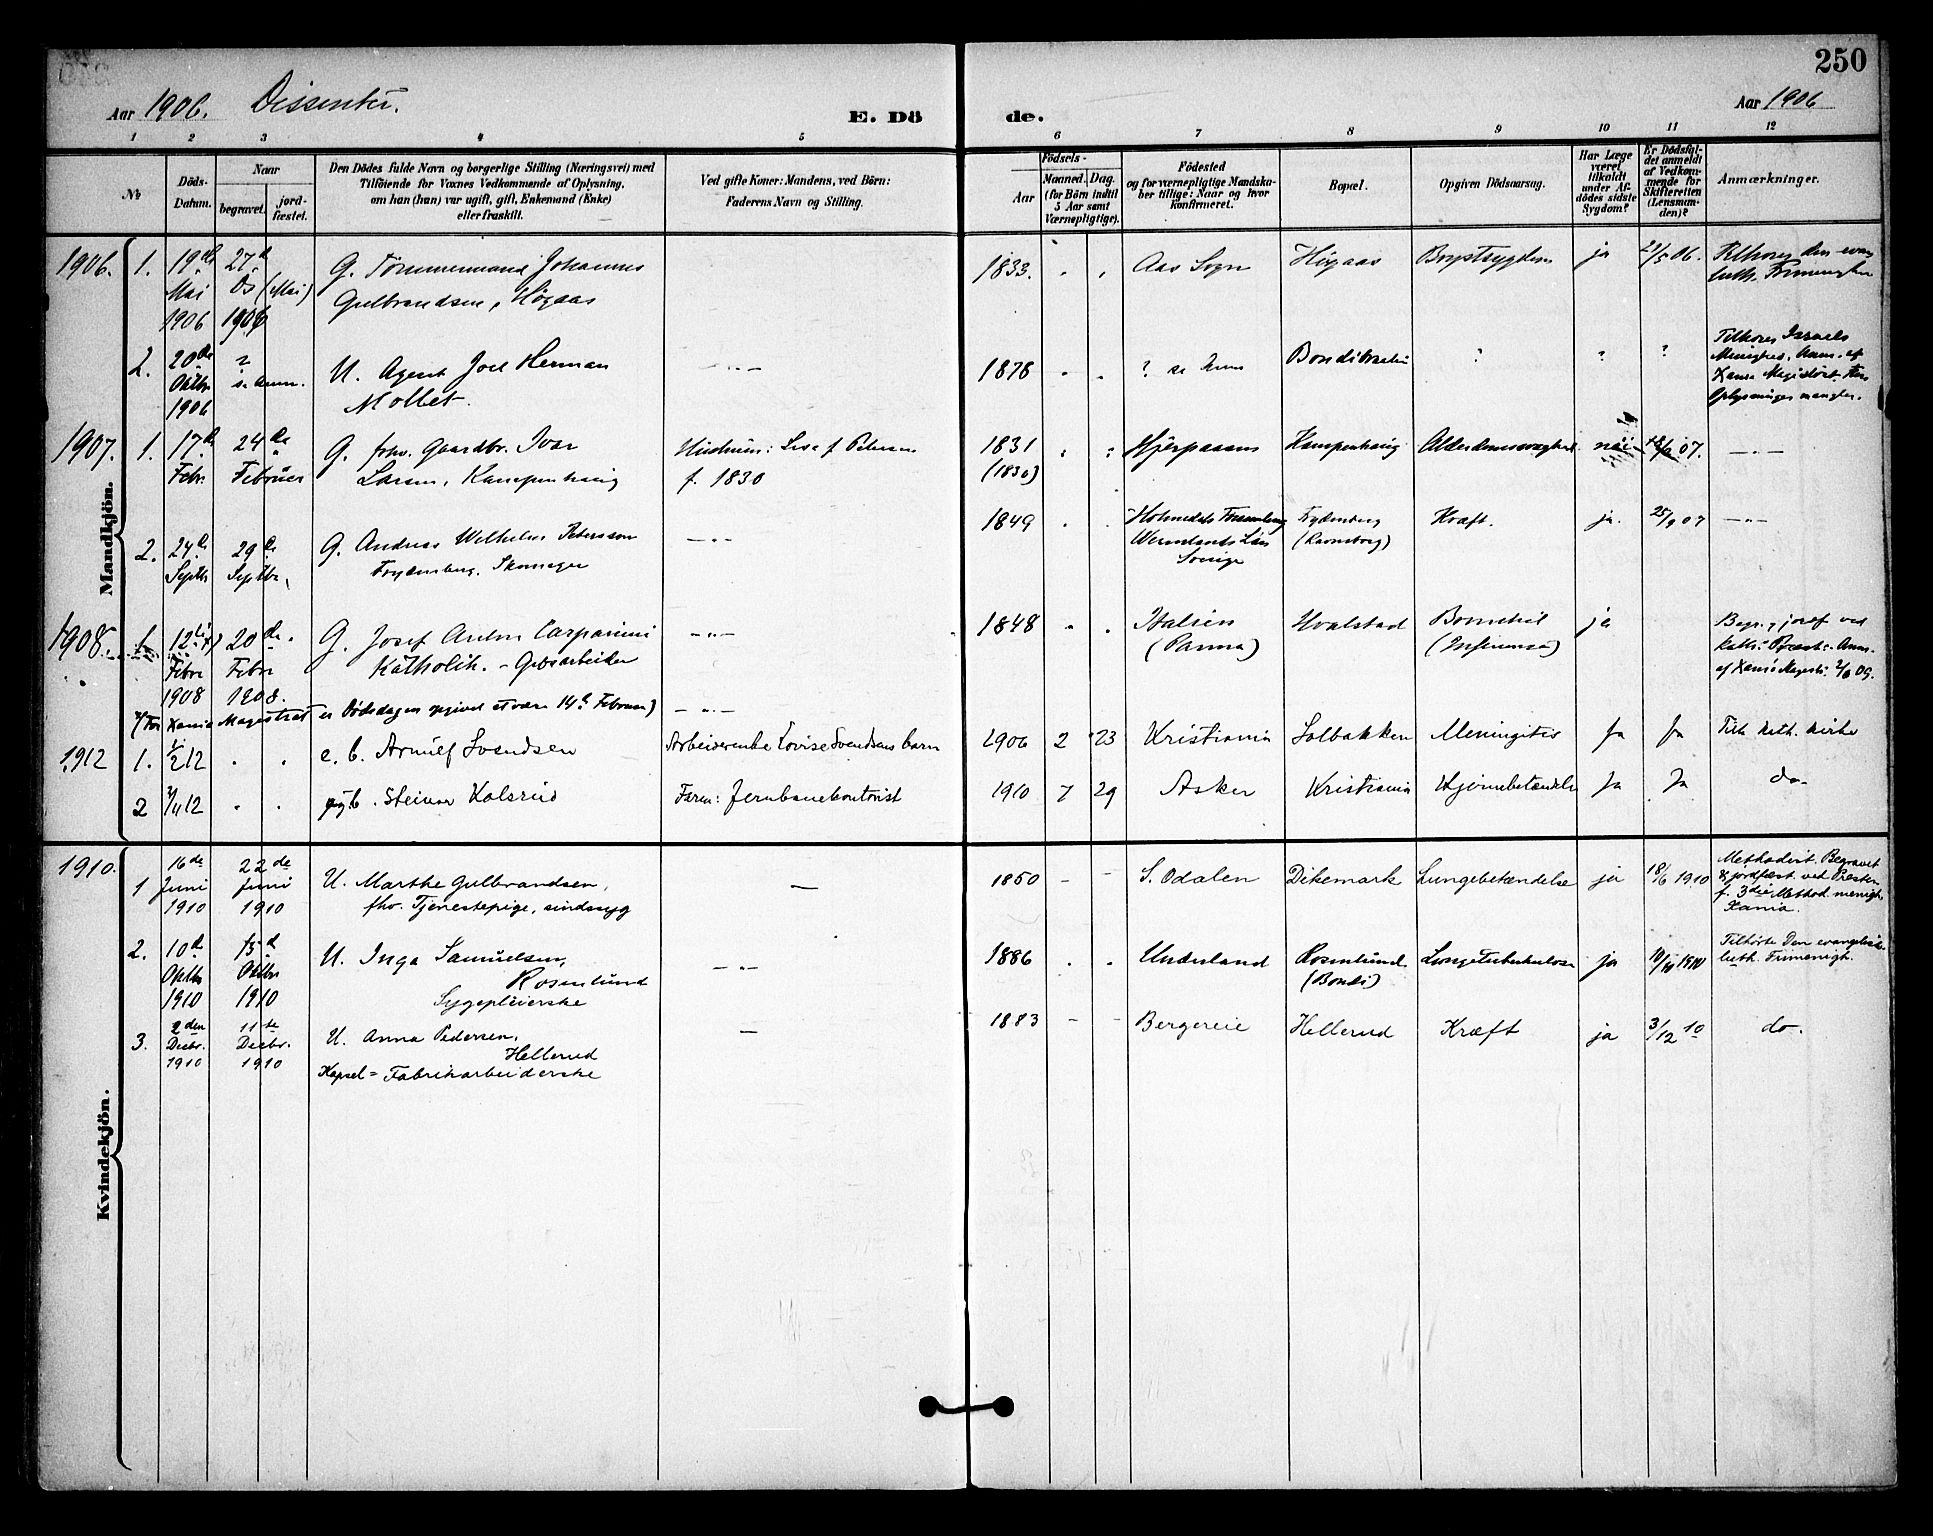 250
Aar 1906. Dissenter. E. Döde. Aar 1906
1 2 3 4 5 6 7 8 9 10 11 12
№
Döds-Datum.
Naar
begravet.
jordfæstet.
Den Dödes fulde Navn og borgerlige Stilling (Næringsvei) med
Tilföiende for Voxnes Vedkommende af Oplysning,
om han (hun) var ugift, gift, Enkemand (Enke)
eller fraskilt.
Ved gifte Koner: Mandens, ved Börn:
Faderens Navn og Stilling.
Födsels-
Aar
Maaned. Dag.
(for Börn indtil
5 Aar samt
Værnepligtige).
Födested
og for værnepligtige Mandskaber tillige: Naar og hvor
konfirmeret.
Bopæl.
Opgiven Dödsaarsag.
Har Læge
været
tilkaldt
under Afdödes sidste
Sygdom?
Er Dödsfaldet anmeldt
af Vedkommende for
Skifteretten
(Lensmanden)?
Anmærkninger.
Mandkjön.
1906. 1. 19de Mai 1906 27de (Mai) 1906
G. Tømmermand Johannes
Gulbrandsen, Høgaas
1833. Aas Sogn Høgaas Brystsygdom ja 29/5 06. Tilhores den evang
luth. Frimenighe
2. 20de Oktbr 1906 ? se Anm.
U. Agent Joel Herman
Mollet.
1878 ? se Anm ? ? ?
Tilhores Israels
Menighed, Anm. af
Xania Magistrat. Flere
Oplysninger mangler.
1907. 1. 17de Febr 24de Februar
G. fhv. Gaardbr. Ivar
Larsen, Kampenhaug
f. 1830
1831
(1830)
Kampenhaug nei
2. 24de Septbr 29de Septbr,
G. Andreas Wilhelm Petersson
Frydenberg. Skomager
1849 Wermlands Län
Sverige
Frydenberg Kræft. ja. 25/9 07
1908. 1. 12te Febr 1908 20de Febr 1908.
G. Josef Anton
Katholik. - Grovarbeider
er Dödsdagen opgivet at være 14de Februar)
1848 Italien
(Parma) Hvalstad ja
Begr. og jordf ved
kath: Præst: Anm.
af Xania Magistr: 2/6 09.
1912 1. 1/2 12 e. b. Arnulf Svendsen
Arbeiderenke Lovise Svendsens barn
1906 2 23 Kristiania Solbakken Meningitis Ja Ja Tilh kath. kirke
2 12 Steinar Kolsrud
Faren: Jernbanekontorist
1910 7 29 Asker Kristiania Hjernebetændelse Ja Ja do.
Kvindekjön.
1910. 1 16de Juni 1910 22de Juni 1910
U. Marthe Gulbrandsen,
fhv. Tjenestepige, sindssyg
1850 S. Odalen Dikemark Lungebetændelse ja 18/6 1910
Methodist. Begravet
& jordfæst. ved Prester
f. 3die Method. menigh.
Xania.
2. 10de Oktbr 1910 15de Oktbr 1910
U. Inga Samuelsen,
Rosenlund
Sygepleierske
1886 Underland Rosenlund
(Bondi) Lungetuberkulose ja 1910
Tilhørte Den evangelisk
luth. Frimenigh.
3. 2den Decbr. 1910 11te Decbr. 1910
U. Anna Pedersen,
Hellerud
Kapsel=Fabrikarbeiderske
1883 Bergereie Hellerud Kræft ja 3/12 10 do.